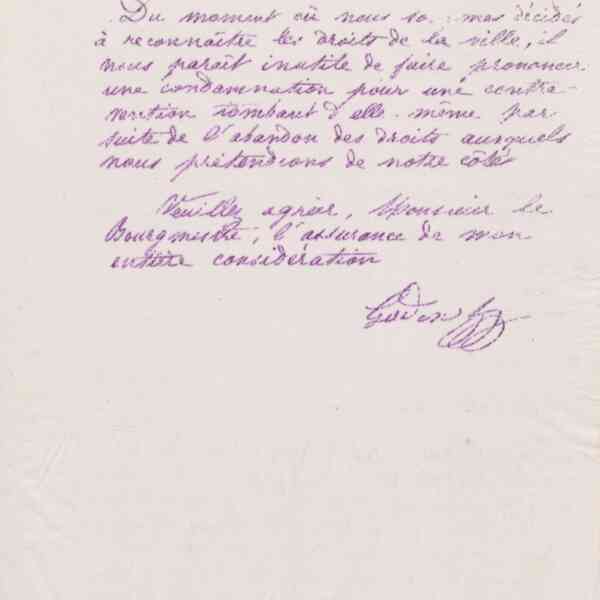 Du moment où nous so mes décidés
à reconnaître les droits de la ville, il
nous paraît inutile de faire prononcer
une condamnation pour une contra-
vention tombant d'elle-même par
suite de l'abandon des droits auxquels
nous prétendions de notre côté
Veuillez agréer, Monsieur le
Bourgmestre, l'assurance de mon
entière considération
Godin